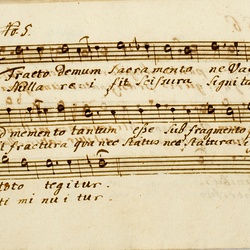 No. 5.
Fracto Demum Sacramento ne Va
Nulla re i fit Scissura Signi ta
d memento tantum esse sub fragmento
t fractura qua nec status nec statura
toto tegitur.
ti mi nu i tur.